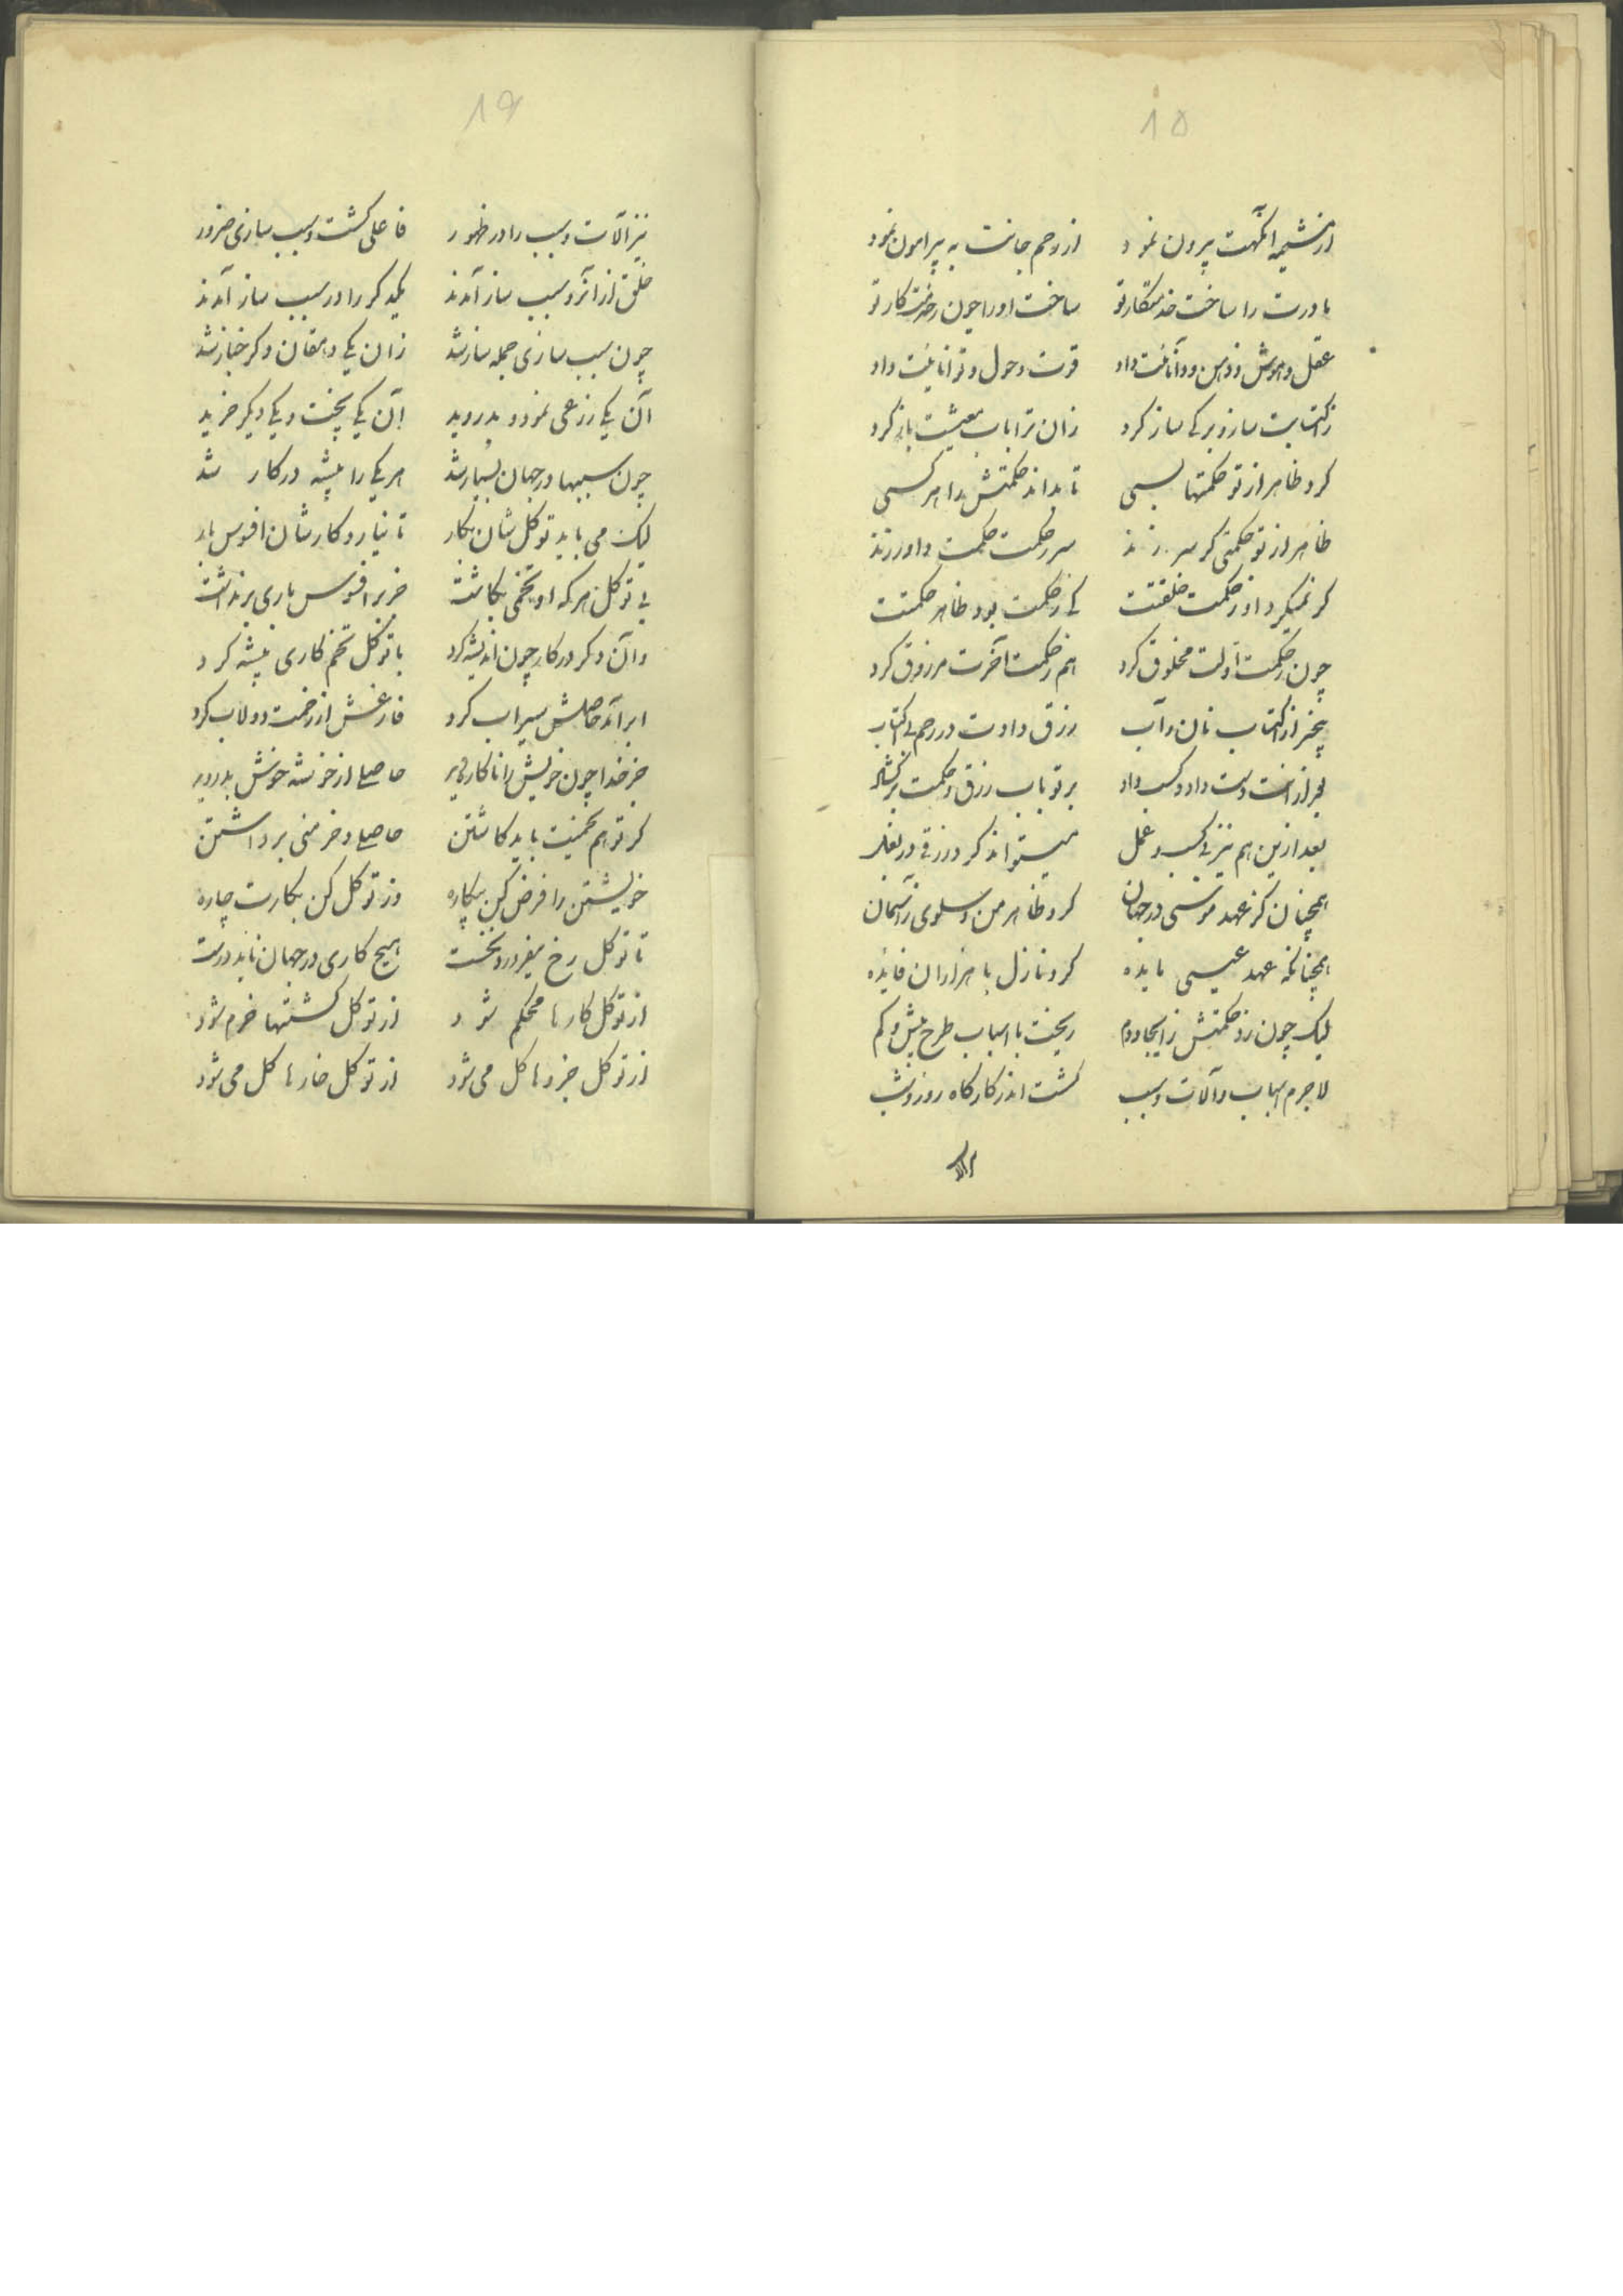 ۱۵
از مشیمه آنگهت بیرون نمود از رحم جانت به پیرامون نمود
مادرت را ساخت خدمتکار تو ساخت او را چون رحمت کار تو
عقل و هوش و ذهن و دانائیت داد قوت و حول و توانائیت داد
ز اکتسابت ساز و برکی ساز کرد زان ترا باب معیشت باز کرد
کرد ظاهر از تو حکمتها بسی تا بداند حکمتش را هر کسی
ظاهر از تو حکمتی کر سر زند سر ز حکمت حکمت داور زند
کر نمیکرد او ز حکمت خلقتت کی ز حکمت بود ظاهر حکمتت
چون ز حکمت اولت مخلوق کرد هم ز حکمت آخرت مرزوق کرد
بیخبر از اکتساب نان و آب رزق دادت در رحم بی اکتساب
بعد از آنت دست داد و کسب داد بر تو باب رزق و حکمت بر کشاد
بعد ازین هم نیز بی کسب و عمل میتواند کرد رزقی در بغل
همچنان کز عهد موسی در جهان کرد ظاهر من و سلوی ز آسمان
همچنانکه عهد عیسی مایده کرد نازل با هزاران فایده
لیک چون زد حکمتش ز ایجاد دم ریخت با اسباب طرح بیش و کم
لاجرم اسباب و آلات و سبب کشت اندر کارکاه روز و شب
۱۶
نیز آلات و سبب را در ظهور فاعلی کشت و سبب سازی ضرور
خلق از آنرو سبب ساز آمدند یکدکر را در سبب ساز آمدند
چون سبب سازی جمله ساز شد زان یکی دهقان دکر خباز شد
آن یکی زرعی نمود و بدروید آن یکی پخت و یکی دیکر خرید
چون سببها در جهان بسیار شد هر یکی را پیشه در کار شد
لیک می باید توکل شان بکار تا نیارد کارشان افسوس بار
بی توکل هر که او تخمی بکاشت جز بر افسوس باری بر نداشت
و آن دکر در کار چون اندیشه کرد با توکل تخم کاری پیشه کرد
ابر آمد حاصلش سیراب کرد فارغش از زحمت دولاب کرد
جز خدا چون خویش را ناکار دید حاصلی از خوشه خوش بدروید
کر تو هم تخمیت باید کاشتن حاصلی و خرمنی برداشتن
خویشتن را فرض کن بیکاره وز توکل کن بکارت چاره
تا توکل رخ نیفروزد نخست هیچ کاری در جهان ناید درست
از توکل کارها محکم شود از توکل کشتها خرم شود
از توکل جزوها کل می شود از توکل خارها کل می شود